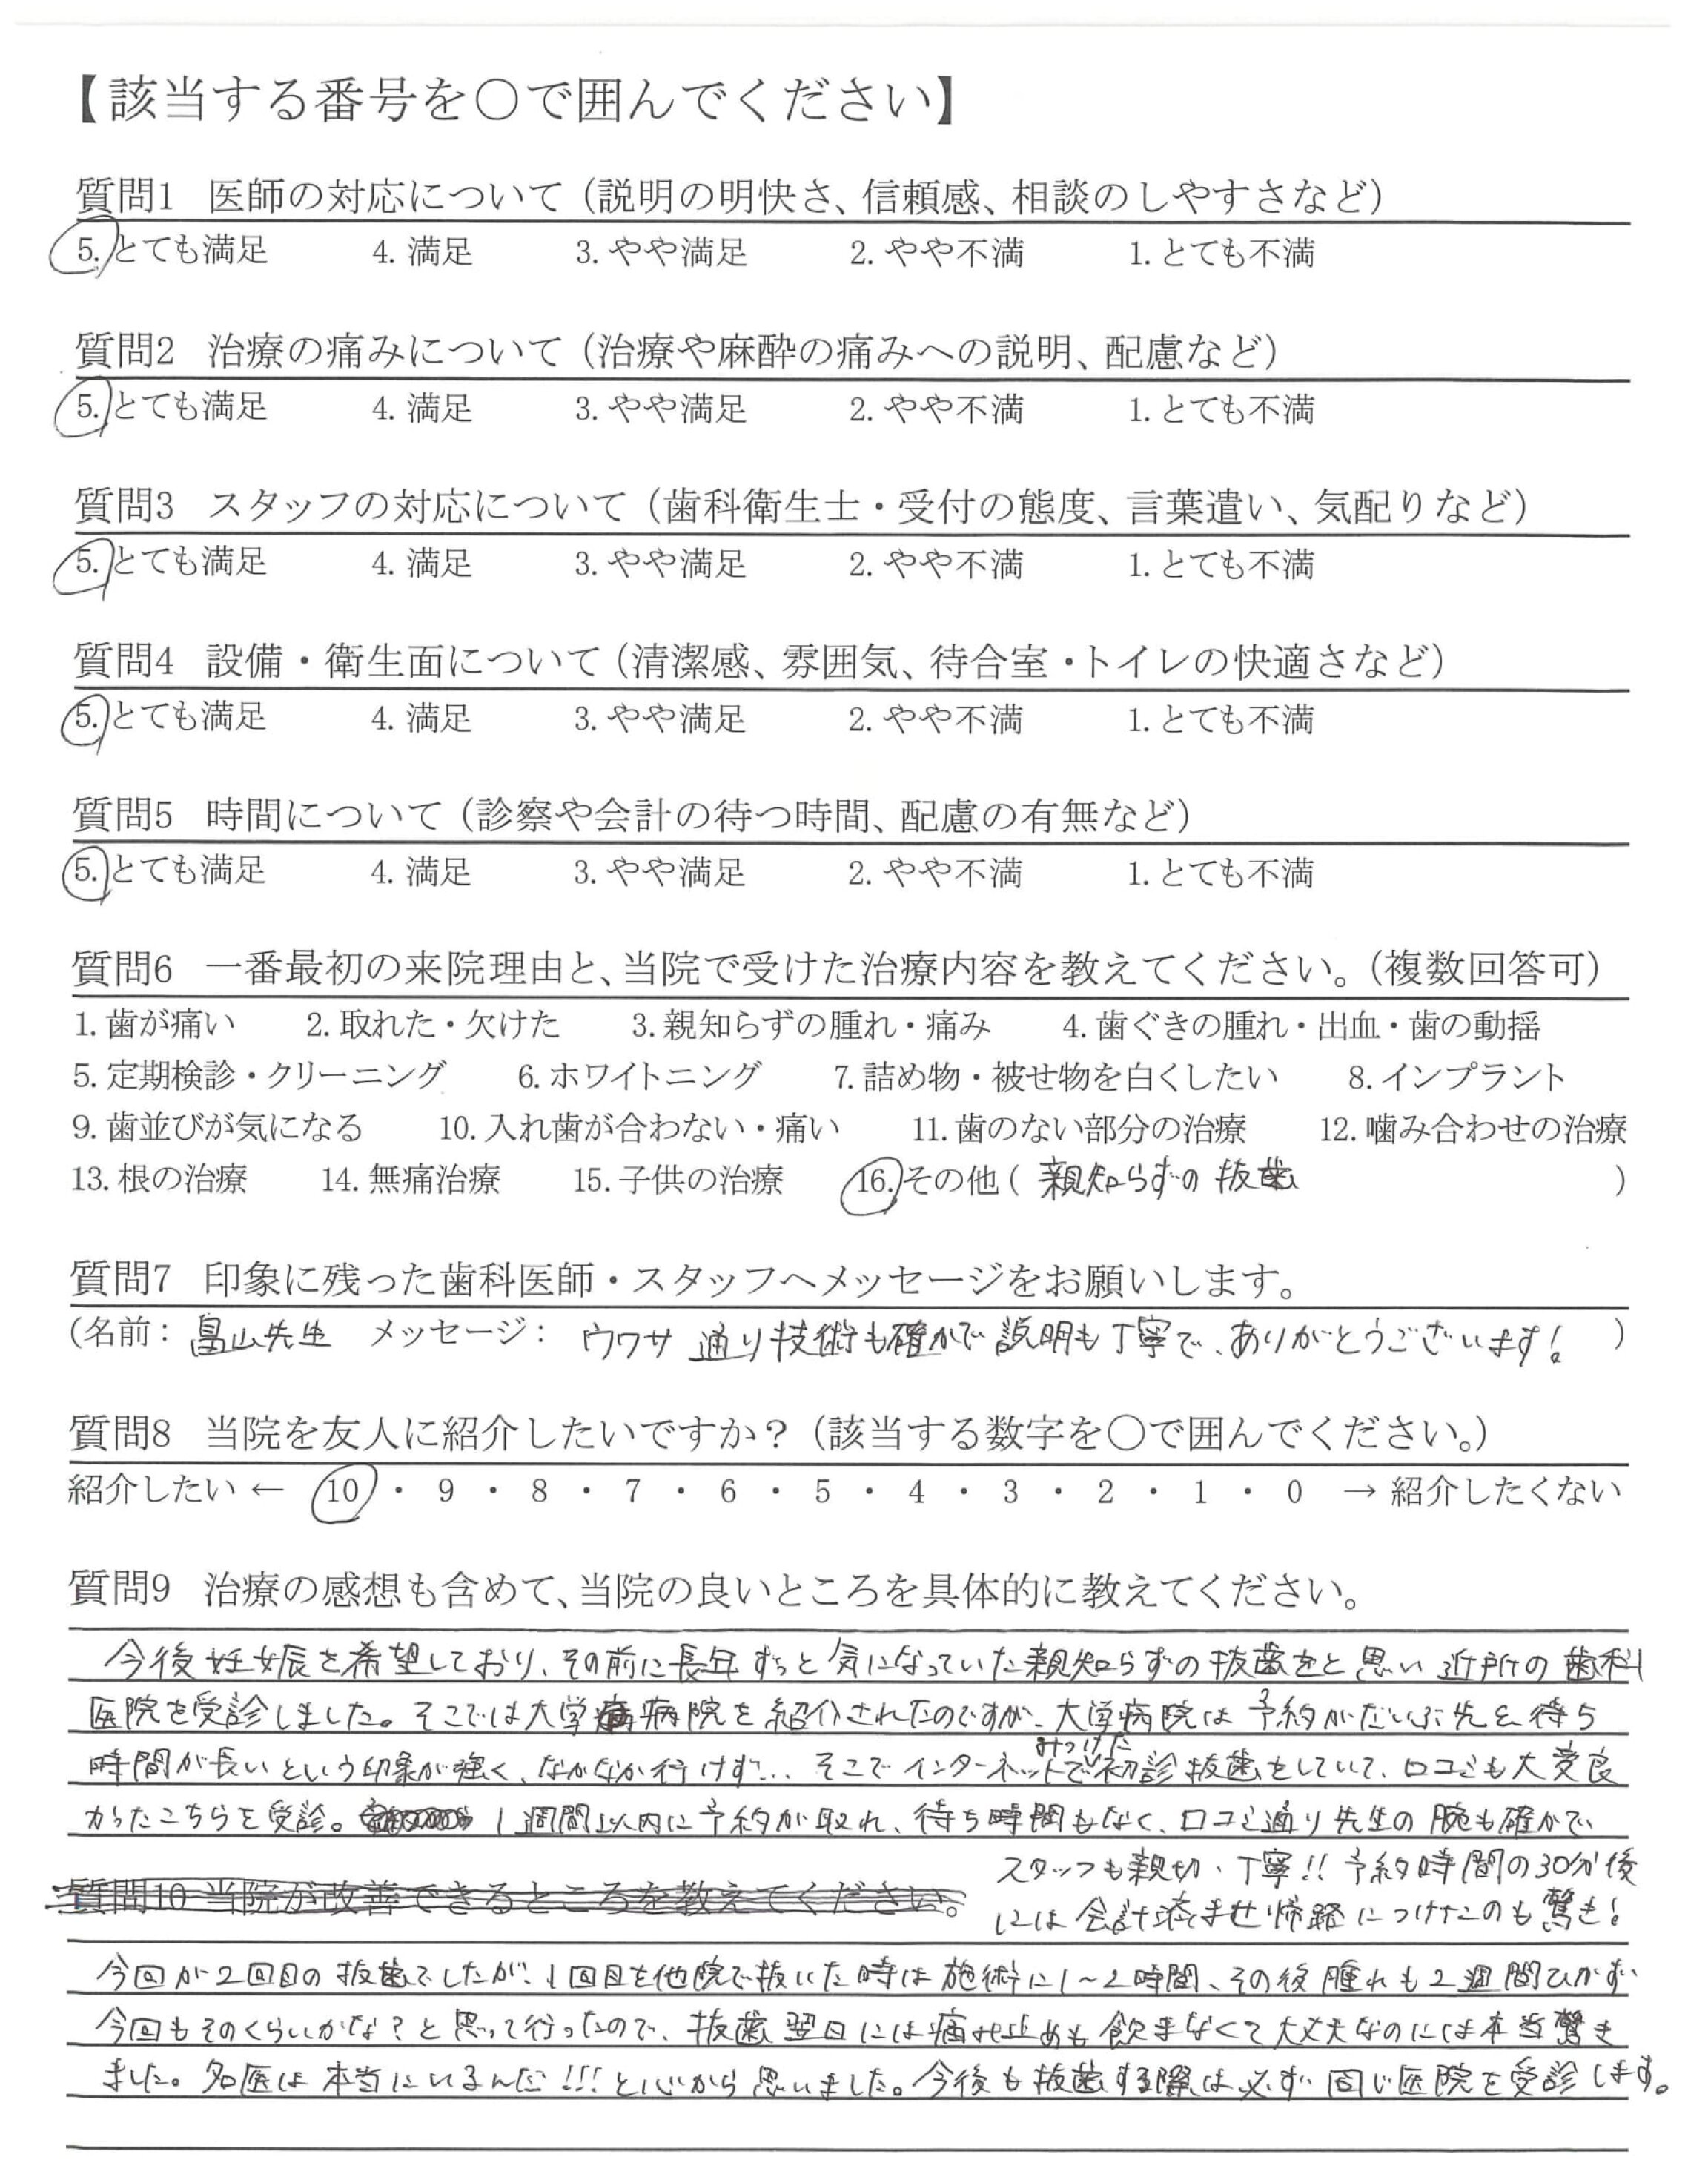 【該当する番号を○で囲んでください】
質問1 医師の対応について（説明の明快さ、信頼感、相談のしやすさなど）
5.とても満足 4. 満足 3. やや満足 2. やや不満 1. とても不満
質問2 治療の痛みについて（治療や麻酔の痛みへの説明、配慮など）
5.とても満足 4. 満足 3. やや満足 2. やや不満 1. とても不満
質問3 スタッフの対応について（歯科衛生士・受付の態度、言葉遣い、気配りなど）
5.とても満足 4. 満足 3. やや満足 2. やや不満 1. とても不満
質問4 設備・衛生面について（清潔感、雰囲気、待合室・トイレの快適さなど）
5.とても満足 4. 満足 3. やや満足 2. やや不満 1. とても不満
質問5 時間について（診察や会計の待つ時間、配慮の有無など）
5.とても満足 4. 満足 3. やや満足 2. やや不満 1. とても不満
質問6 一番最初の来院理由と、当院で受けた治療内容を教えてください。（複数回答可）
1. 歯が痛い 2. 取れた・欠けた 3. 親知らずの腫れ・痛み 4. 歯ぐきの腫れ・出血・歯の動揺
5. 定期検診・クリーニング 6. ホワイトニング 7. 詰め物・被せ物を白くしたい 8. インプラント
9. 歯並びが気になる 10. 入れ歯が合わない・痛い 11. 歯のない部分の治療 12. 噛み合わせの治療
13. 根の治療 14. 無痛治療 15. 子供の治療 16.その他（ 親知らずの抜歯 ）
質問7 印象に残った歯科医師・スタッフへメッセージをお願いします。
（名前： 畠山先生 メッセージ： ウワサ通り技術も確かで説明も丁寧で、ありがとうございます！ ）
質問8 当院を友人に紹介したいですか？（該当する数字を○で囲んでください。）
紹介したい ← 10 ・ 9 ・ 8 ・ 7 ・ 6 ・ 5 ・ 4 ・ 3 ・ 2 ・ 1 ・ 0 → 紹介したくない
質問9 治療の感想も含めて、当院の良いところを具体的に教えてください。
今後妊娠を希望しており、その前に長年ずっと気になっていた親知らずの抜歯をと思い近所の歯科
医院を受診しました。そこでは大学病院を紹介されたのですが、大学病院は予約がだいぶ先&待ち
時間が長いという印象が強く、なかなか行けず… そこでインターネットでみつけた初診抜歯をしていて、口コミも大変良
かったこちらを受診。1週間以内に予約が取れ、待ち時間もなく、口コミ通り先生の腕も確かで
スタッフも親切・丁寧!! 予約時間の30分後
には会計済ませ帰路につけたのも驚き！
質問10 当院が改善できるところを教えてください。
今回が2回目の抜歯でしたが、1回目を他院で抜いた時は施術に1～2時間、その後腫れも2週間ひかず
今回もそのくらいかな？と思って行ったので、抜歯翌日には痛み止めも飲まなくて大丈夫なのには本当驚き
ました。名医は本当にいるんだ!!!と心から思いました。今後も抜歯する際は必ず同じ医院を受診します。